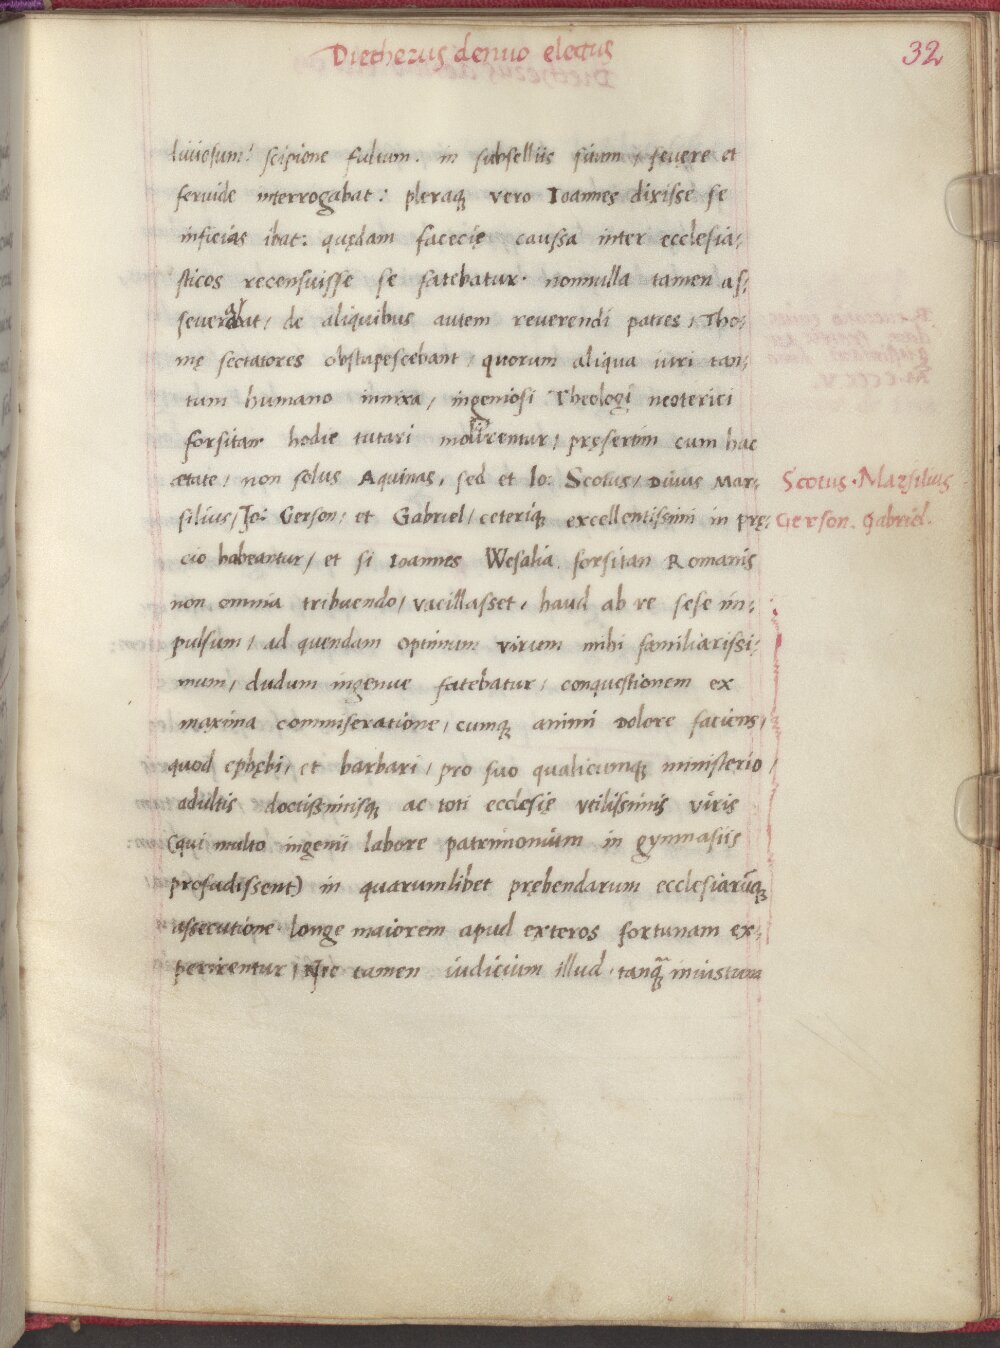 Dietherus denuo electus
32
liuiesum! scipione fultum. in subselliis suum / seuere et
feruide interrogabat: pleraq vero Ioannes dixisse se
inficias ibat: quędam facecię caussa inter ecclesia:
sticos recensuisse se fatebatur. nonnulla tamen as:
seuerabat / de aliquibus autem reuerendi patres / Tho:
mę sectatores obstupescebant / quorum aliqua iuri tan:
tum humano innixa / ingeniosi Theologi neoterici
forsitan hodie tutari molirentur / pręsertim cum hac
ætate / non solus Aquinas, sed et Io: Scotus / Diuus Mar:
silius / Io: Gerson: et Gabriel / ceteriq excellentissimi in prę:
cio habeantur / et si Ioannes Wesalia forsitan Romanis
non omnia tribuendo / vacillasset, haud ab re sese im:
pulsum / ad quendam optimum virum mihi familiarissi:
mum / dudum ingenue fatebatur / conquestionem ex
maxima commiseratione / cumq animi dolore faciens /
quod ephębi / et barbari / pro suo qualicumq ministerio /
adultis doctissimisq ac toti ecclesię vtilissimis viris
(qui multo ingenii labore patrimonium in gymnasiis
profudissent) in quarumlibet prębendarum ecclesiarūq
assecutione longe maiorem apud exteros fortunam ex:
perirentur / Ne tamen iudicium illud tanq̃ iniustum
Scotus. Marsilius
Gerson. Gabriel.